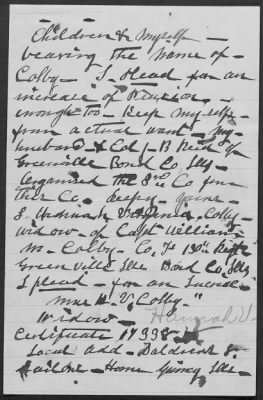 Children & Myself -
bearing the name of -
Colby - I Plead for an
increase of Pension.
enough too - Keep my self -
from actual want - My -
husband & Col J - B Reid of
Greenville Bond Co Ills -
Organised the 3rd Co from
their Co.
Hannah V Colby -
widow - of Capt William -
M - Colby - Co, F 130th Regt
Greenville Ills Bond Co Ills
I plead - for an Increase -
"Mrs H. V. Colby."
Hannah V.
Widow -
Certificate 17338
Local add - Baldwin
Home Quincy Ills -